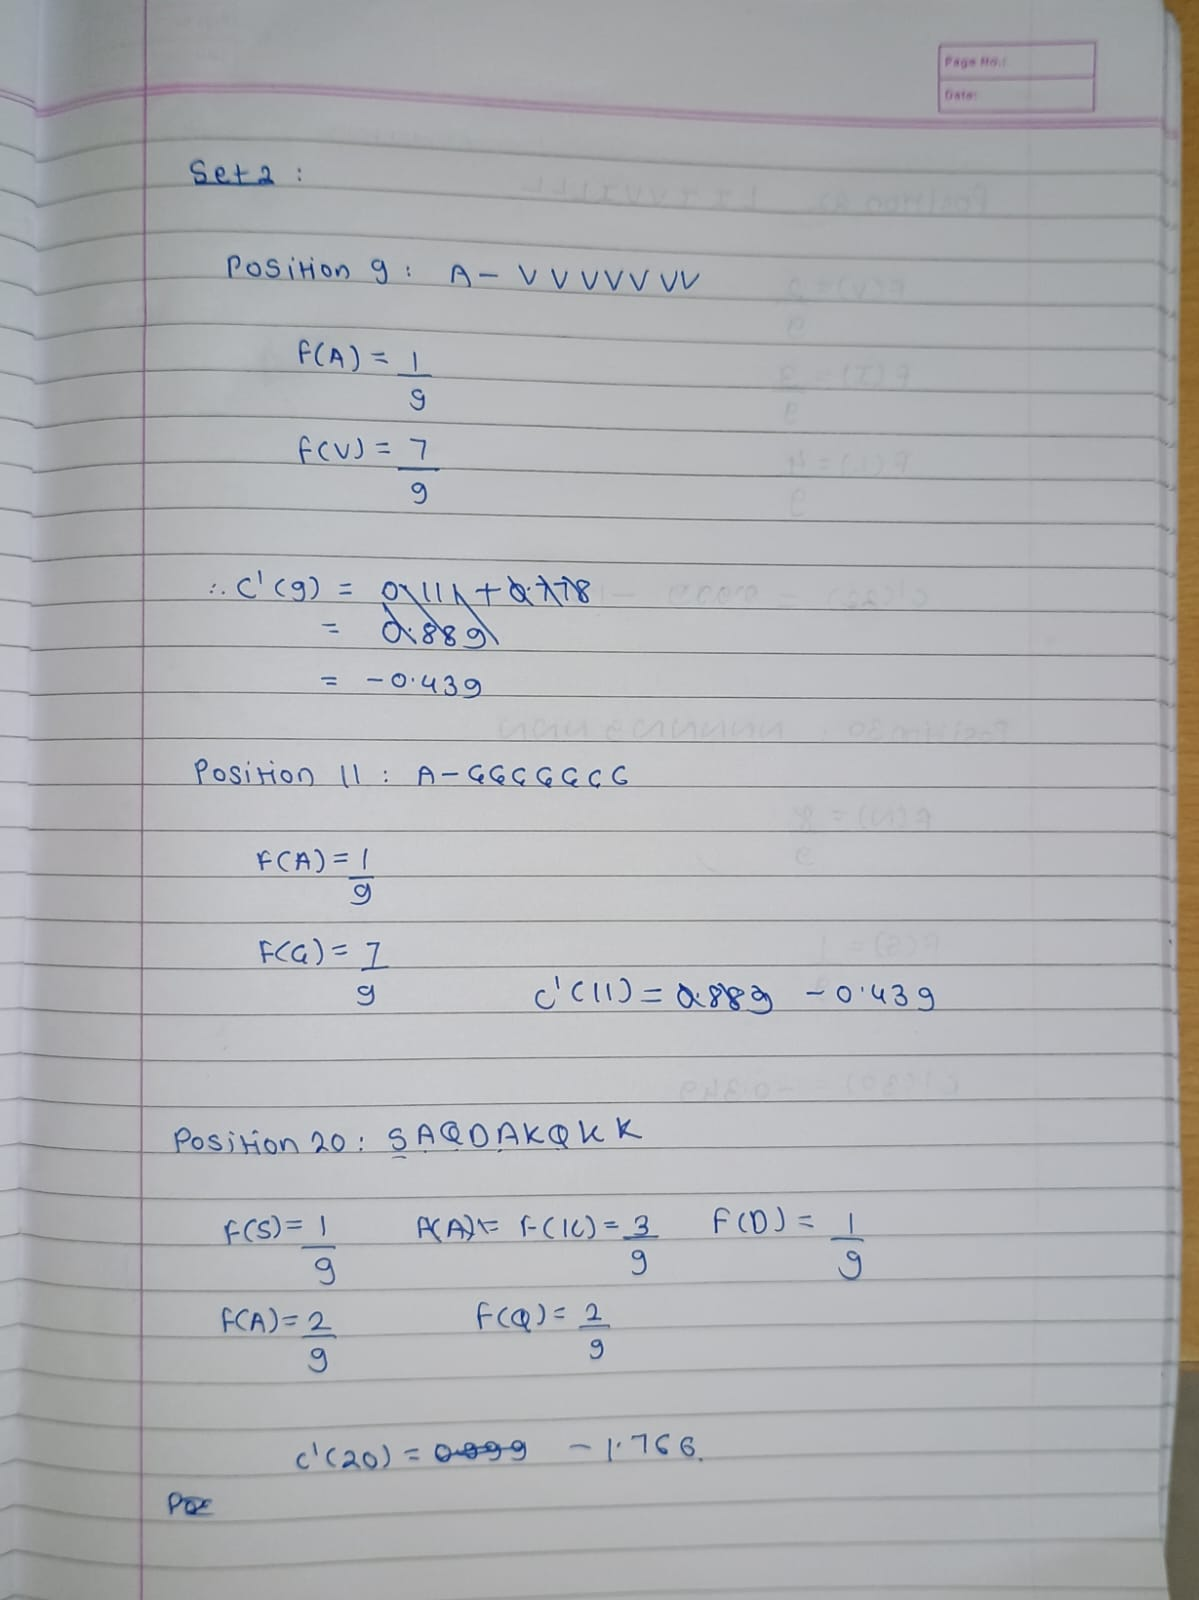 Page No.:
Date:
Set 2 :
Position 9 : A - V V V V V V V
F(A) = 1/9
F(V) = 7/9
∴ C'(9) = 0.111 + 0.778
= 0.889
= -0.439
Position 11 : A - G G G G G G G
F(A) = 1/9
F(G) = 7/9
C'(11) = 0.889 -0.439
Position 20 : S A Q D A K Q K K
F(S) = 1/9 F(A) = F(K) = 3/9 F(D) = 1/9
F(A) = 2/9 F(Q) = 2/9
C'(20) = 0.999 -1.766.